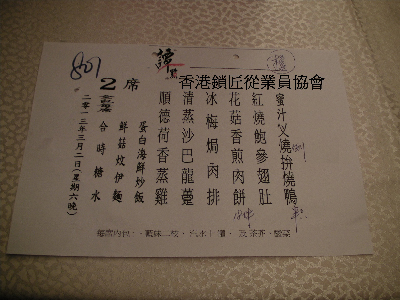 801
2席
香港鎖匠從業員協會
蜜汁叉燒拚燒鴨
紅燒鮑參翅肚
花菇香煎肉餅
冰梅焗肉排
清蒸沙巴龍躉
順德荷香蒸雞
蛋白海鮮炒飯
鮮菇炆伊麵
合時糖水
二零一三年三月二日(星期六晚)